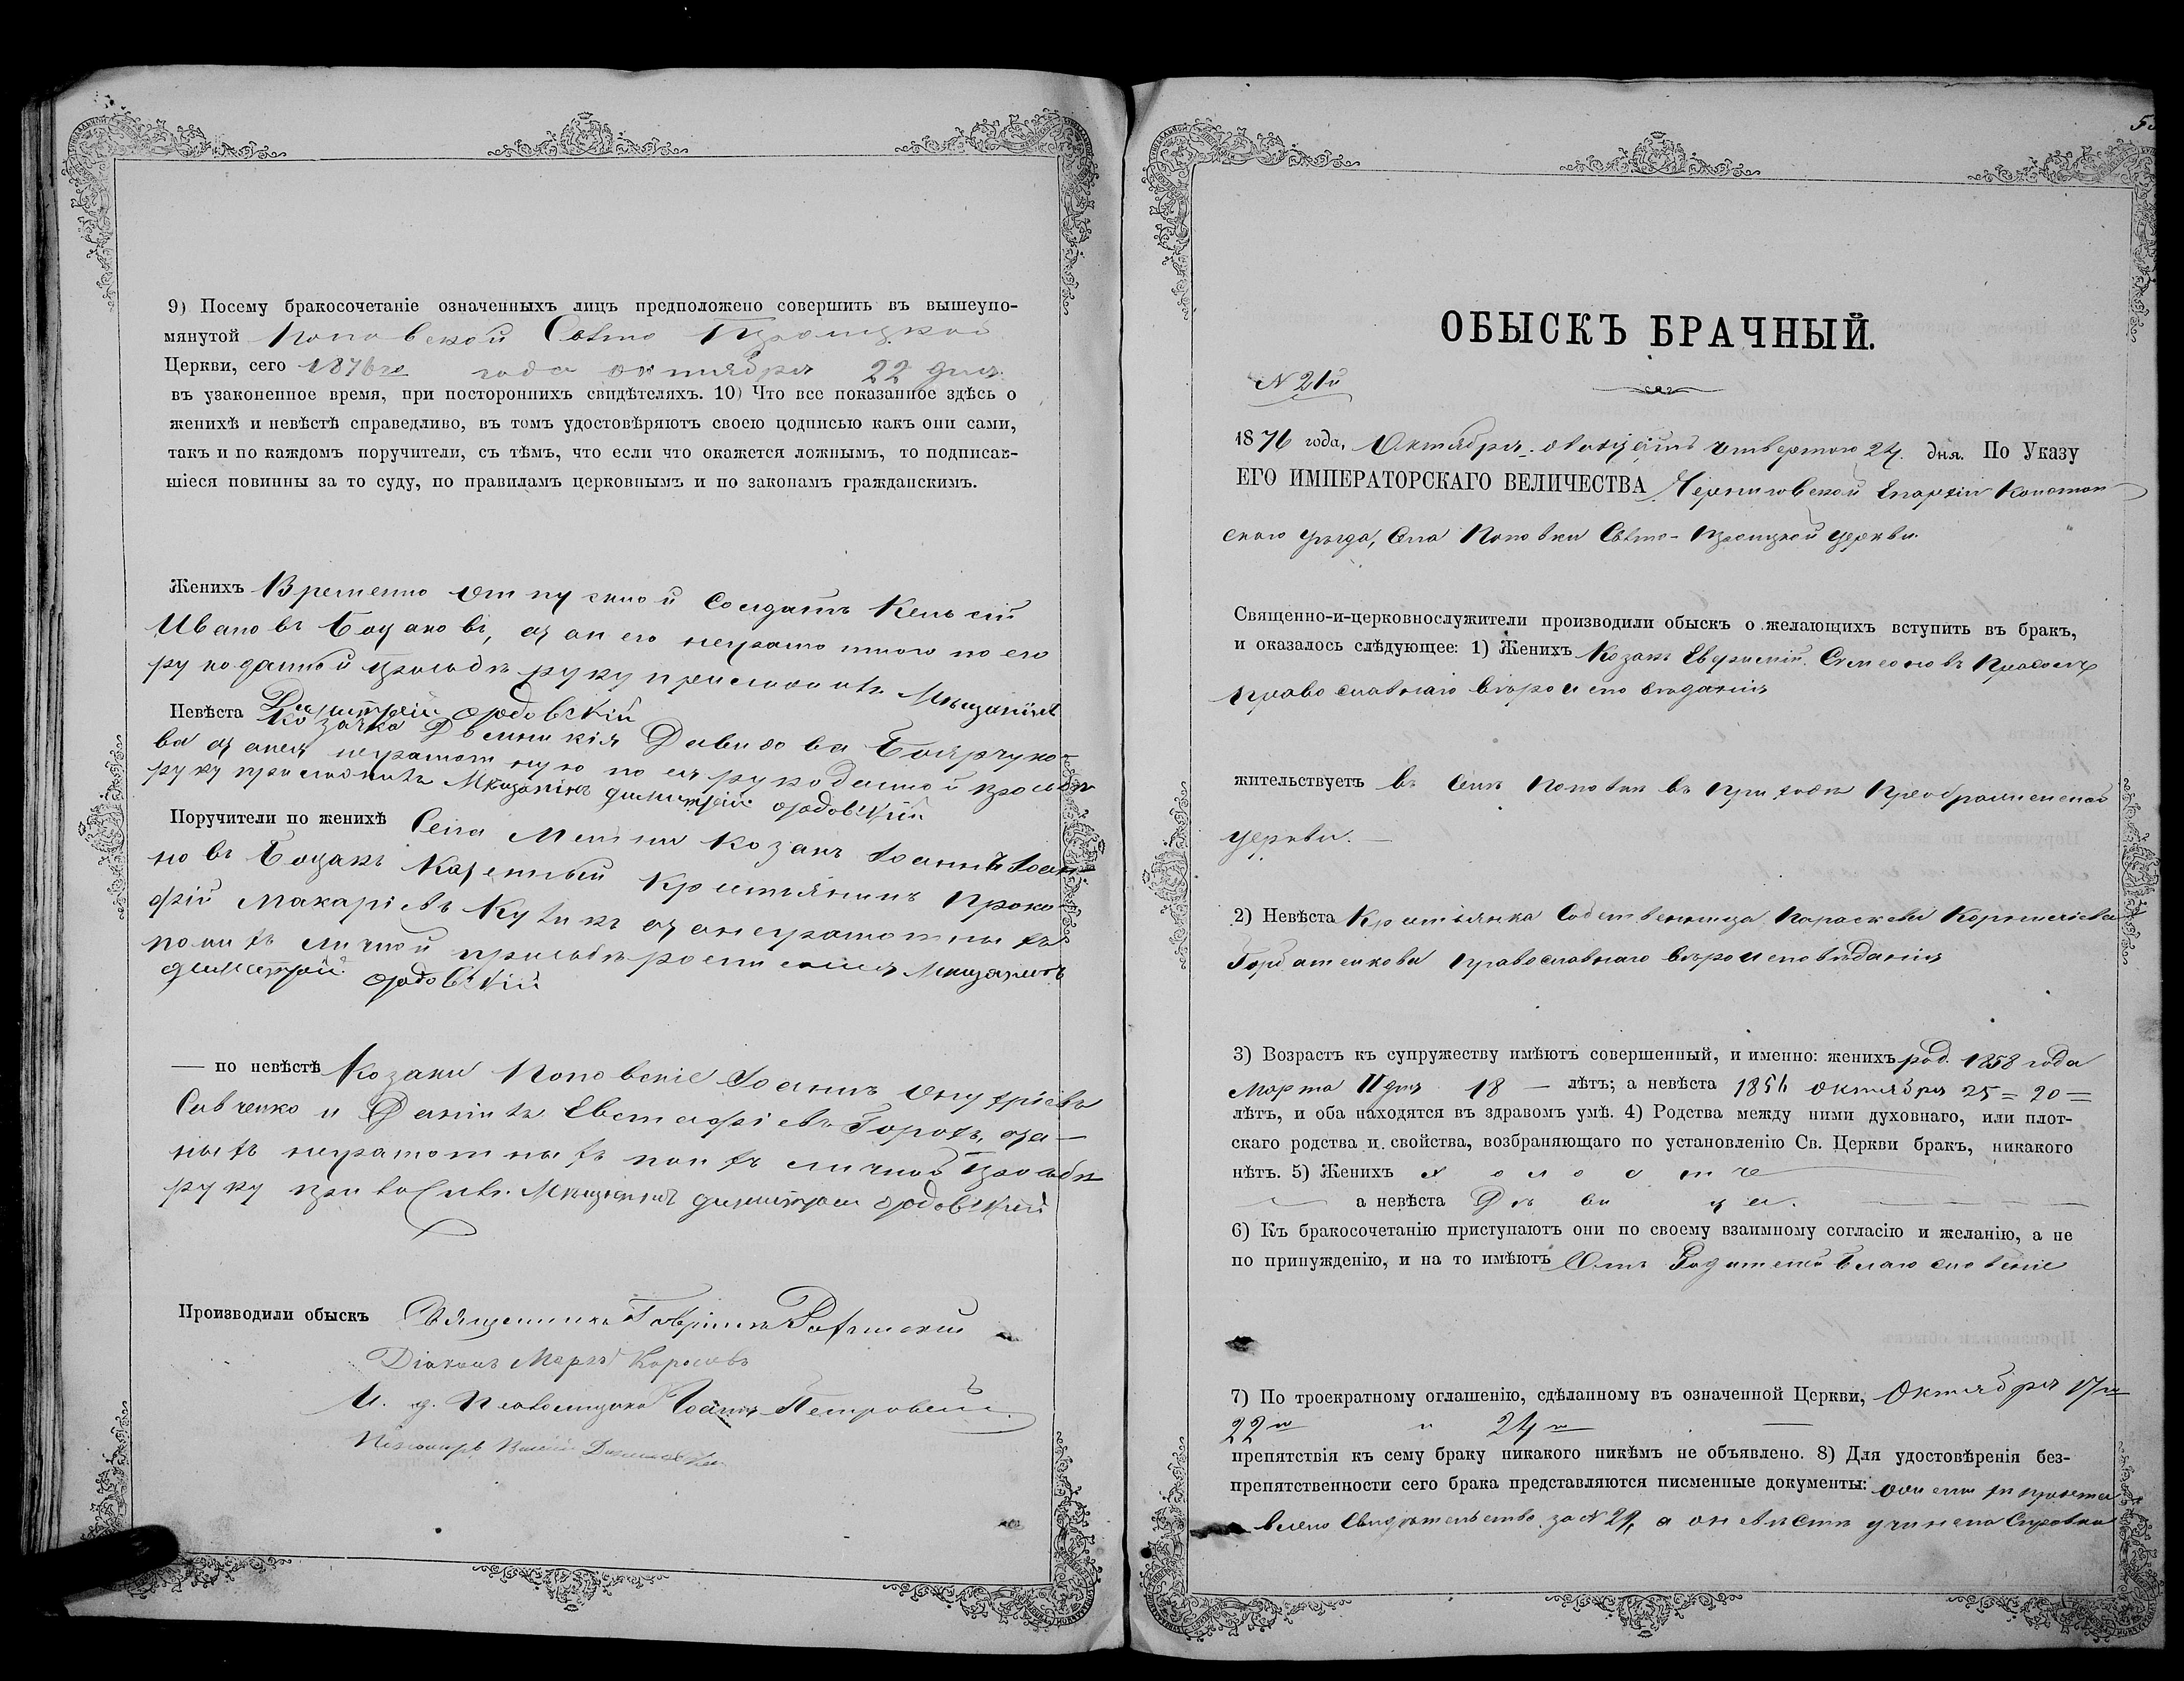 9) Посему бракосочетаніе означенныхъ лицъ предположено совершить въ вышеупо-
мянутой Поповской Свѣто Троицкой
Церкви, сего 1876го года октября 22 дня
въ узаконенное время, при постороннихъ свидѣтеляхъ. 10) Что все показанное здѣсь о
женихѣ и невѣстѣ справедливо, въ томъ удостовѣряютъ своею подписью какъ они сами,
такъ и по каждомъ поручители, съ тѣмъ, что если что окажется ложнымъ, то подписав-
шіеся повинны за то суду, по правиламъ церковнымъ и по законамъ гражданскимъ.
Женихъ Временно отпускной Солдатъ
Ивановъ Боцаковъ, а за его неграмотного по его
рукоданной прозьбѣ руку приложилъ Мѣщанинъ
Димитрій
Невѣста Козачка Давидова
ва а за нея неграмотную по ея рукоданной прозьбѣ
руку приложилъ Мѣщанинъ Димитрій
Поручители по женихѣ Села Козакъ Іоаннъ
новъ Боцакъ Казенный Крестьянинъ Проко-
фій Макаріевъ а за неграмотныхъ
по ихъ личной прозьбѣ росписался Мѣщанинъ
Димитрій
— по невѣстѣ Козаки Поповскіе Іоаннъ Онуфріевъ
Савченко и Даніилъ Евстафіевъ Горохъ, а за-
ныхъ неграмотныхъ по ихъ личной прозьбѣ
руку приложилъ Мѣщанинъ Димитрій
Производили обыскъ Священникъ Гавріилъ
Діаконъ
И. д. Псаломщика Іоаннъ Петровскій
Пономарь
ОБЫСКЪ БРАЧНЫЙ.
N 21й
1876 года, Октября двадцать четвертого 24 дня. По Указу
ЕГО ИМПЕРАТОРСКАГО ВЕЛИЧЕСТВА Черниговской Епархіи Конотоп
ского уѣзда, Села Поповки Свѣто-Троицкой церкви
Священно-и-церковнослужители производили обыскъ о желающихъ вступить въ бракъ,
и оказалось слѣдующее: 1) Женихъ Козакъ Семеоновъ
православнаго вѣроисповѣданія
жительствуетъ въ Селѣ Поповкѣ въ приходѣ Преображенской
церкви. —
2) Невѣста Крестьянка Собственница Параскева Корниліева
Горбатенкова православнаго вѣроисповѣданія
3) Возрастъ къ супружеству имѣютъ совершенный, и именно: женихъ род. 1858 года
Марта 11 дня 18 — лѣтъ; а невѣста 1856 октября 25 = 20 =
лѣтъ, и оба находятся въ здравомъ умѣ. 4) Родства между ними духовнаго, или плот-
скаго родства и свойства, возбраняющаго по установленію Св. Церкви бракъ, никакого
нѣтъ. 5) Женихъ холостъ
а невѣста Дѣвица.
6) Къ бракосочетанію приступаютъ они по своему взаимному согласію и желанію, а не
по принужденію, и на то имѣютъ Отъ Родителей благословеніе
7) По троекратному оглашенію, сдѣланному въ означенной Церкви, Октября 17го
22го и 24го —
препятствія къ сему браку никакого никѣмъ не объявлено. 8) Для удостовѣренія без-
препятственности сего брака представляются писменные документы:
Свидѣтельство за N 29, а о учинена Справка